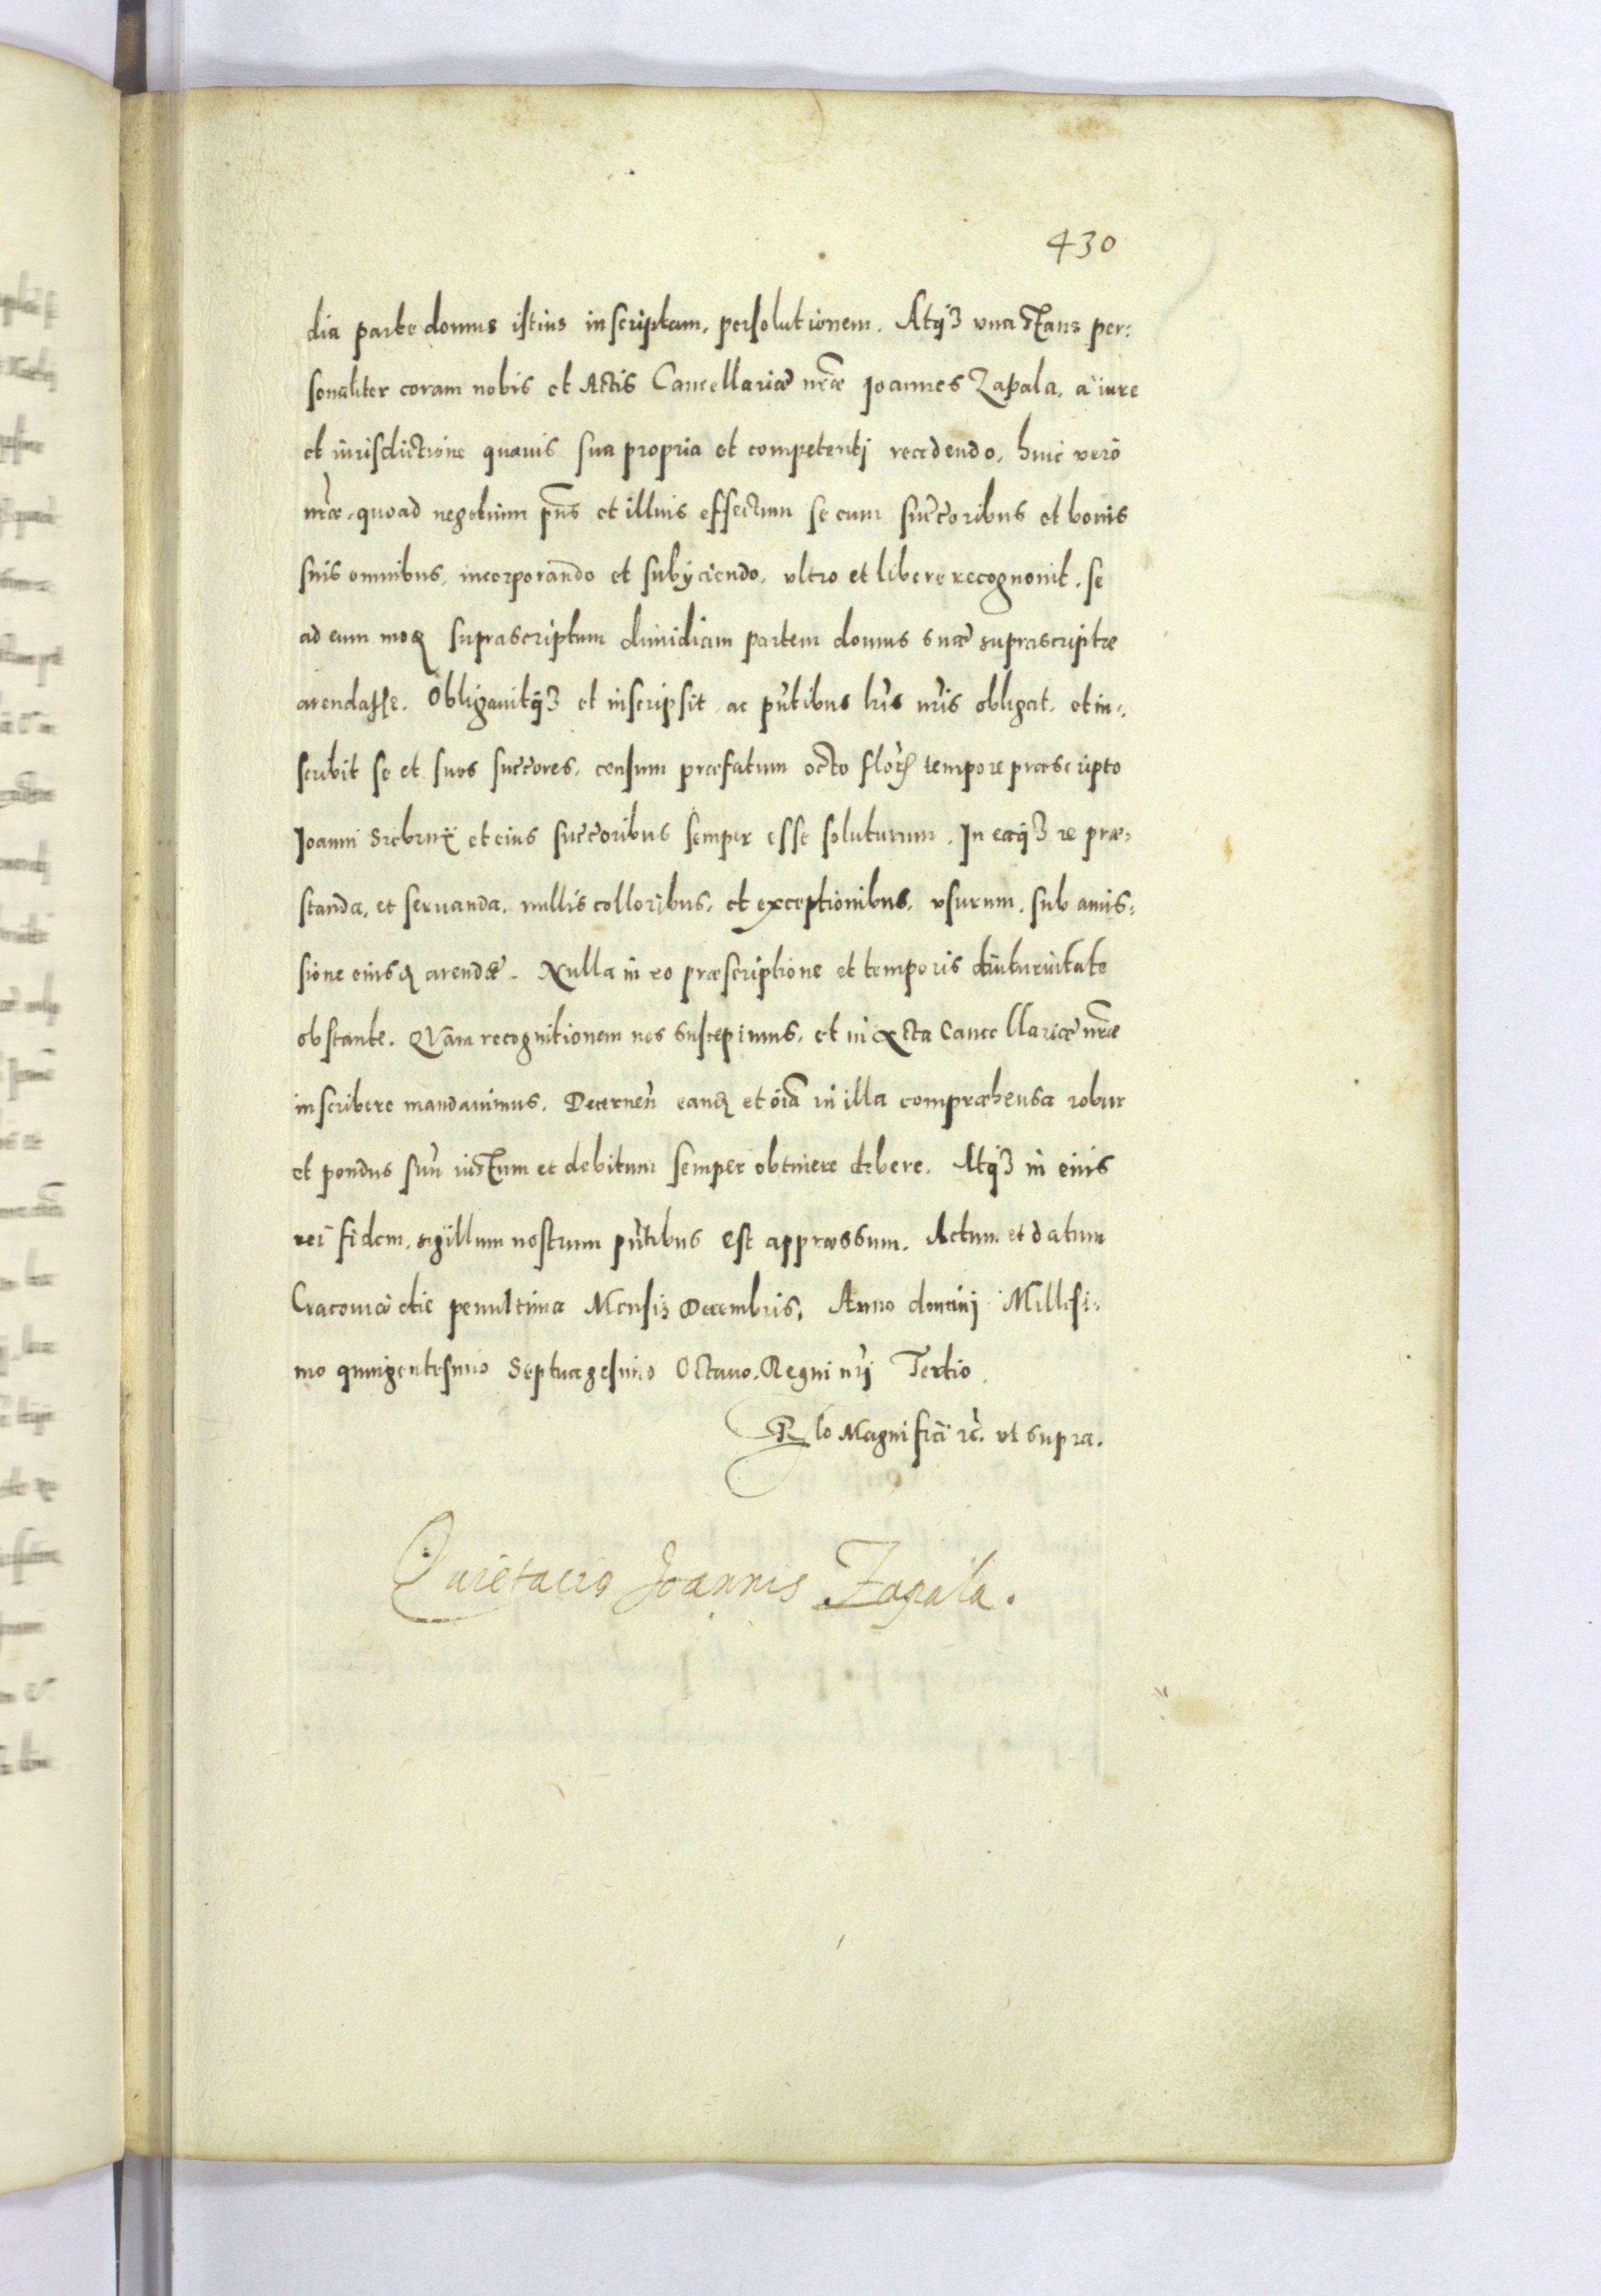 430
dia parte domus istius inscriptam, persolutionem. Atq3 una stans per:
sonaliter coram nobis et Actis Cancellariæ nr̃æ Joannes Zapala, à iure
et iurisdictione quauis sua propria et competenti recedendo, huic verò
nr̃æ, quoad negotium pñs et illius effectum se cum succ̃oribus et bonis
suis omnibus, incorporando et subÿciendo, ultro et libere recognouit, se
ad eum moꝗ suprascriptum dimidiam partem domus suæ suprascriptæ
arendasse. Obligauitq3 et inscripsit ac pñtibus lr̃is nr̃is obligat, et in:
scribit se et suos succ̃ores, censum præfatum octo flor̃ tempore præscripto
Joanni Srebrnÿ et eius succ̃oribus semper esse soluturum. In eaq3 re præ:
standa, et seruanda, nullis colloribus, et exceptionibus, usurum, sub amis:
sione eiusꝗ arendæ. Nulla in eo præscriptione et temporis diuturnitate
obstante. QVam recognitionem nos suscepimus, et in Acta Cancellariæ nr̃æ
inscribere mandauimus. Decernen̄ eanꝗ et oīa in illa compræhensa robur
et pondus suū iustum et debitum semper obtinere debere. Atq3 in eius
rei fidem, sigillum nostrum pñtibus est appræssum. Actum et datum
Cracouiæ die penultima Mensis Decembris, Anno domini Millesi:
mo quingentesimo Septuagesimo Octauo. Regni nr̃i Tertio.
Rlo Magnifici rc̃. ut supra.
Quietacio Joannis Zapala.